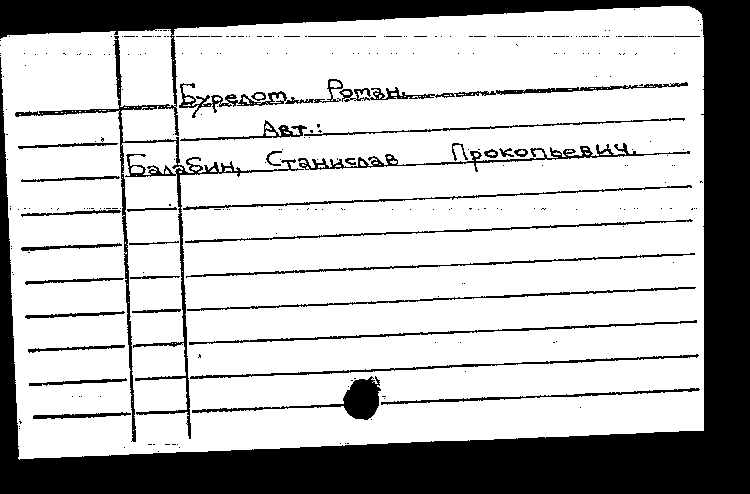 Бурелом. Роман.
Авт.:
Балабин, Станислав Прокопьевич.